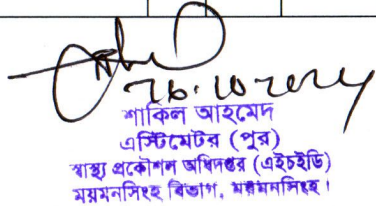 শাকিল আহমেদ
এস্টিমেটর (পুর)
স্বাস্থ্য প্রকৌশল অধিদপ্তর (এইচইডি)
ময়মনসিংহ বিভাগ, ময়মনসিংহ।